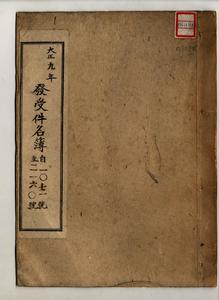 大正九年
發受件名簿
自一〇七一號
至二一六〇號